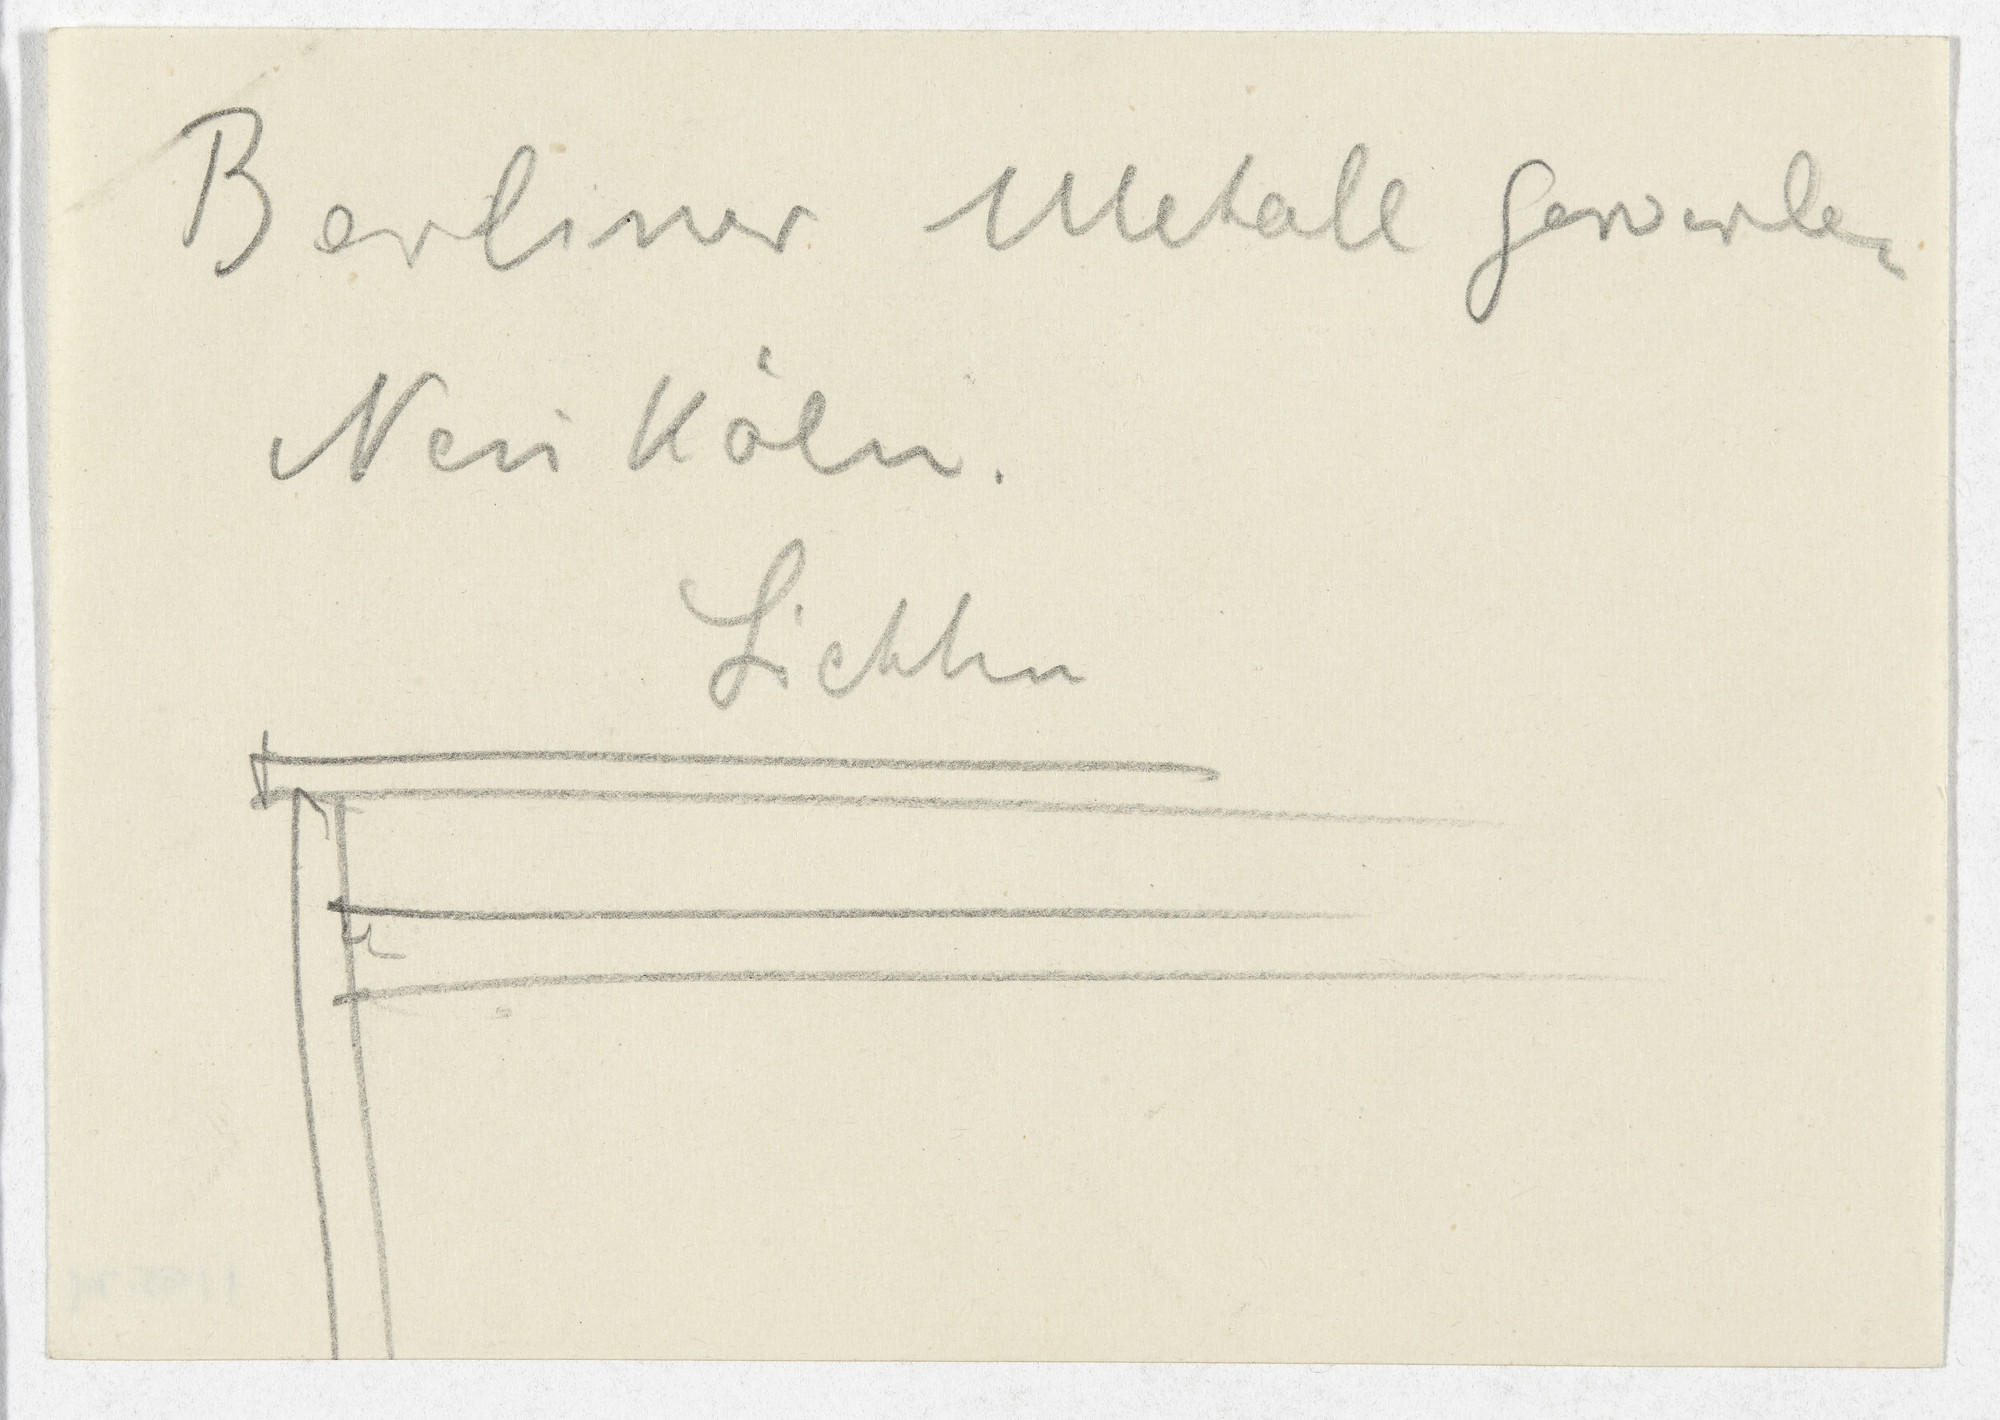 Berliner Metall gewerbe
Neu Köln.